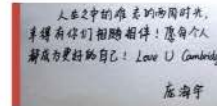 人生之中的难忘的两周时光，
幸得有你们相随相伴！愿每个人
都成为更好的自己！Love U Cambridge
庄海宇